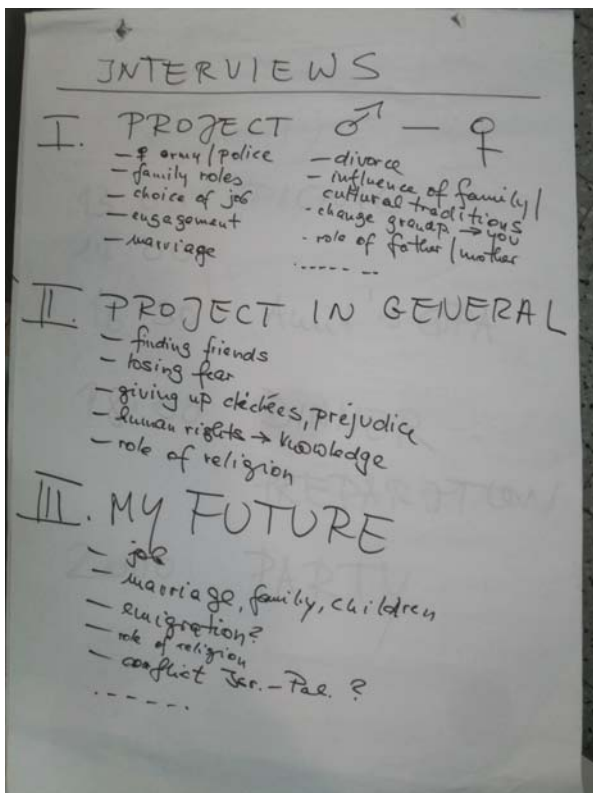 INTERVIEWS
I. PROJECT ♂ – ♀
– ♀ army/police
– family roles
– choice of job
– engagement
– marriage
– divorce
– influence of family/
cultural traditions
- change grandp → you
- role of father/mother
- - - - - - -
II. PROJECT IN GENERAL
– finding friends
– losing fear
– giving up clichées, prejudice
– human rights → knowledge
– role of religion
III. MY FUTURE
– job
– marriage, family, children
– emigration?
– role of religion
– conflict Isr. – Pal. ?
- - - - - -